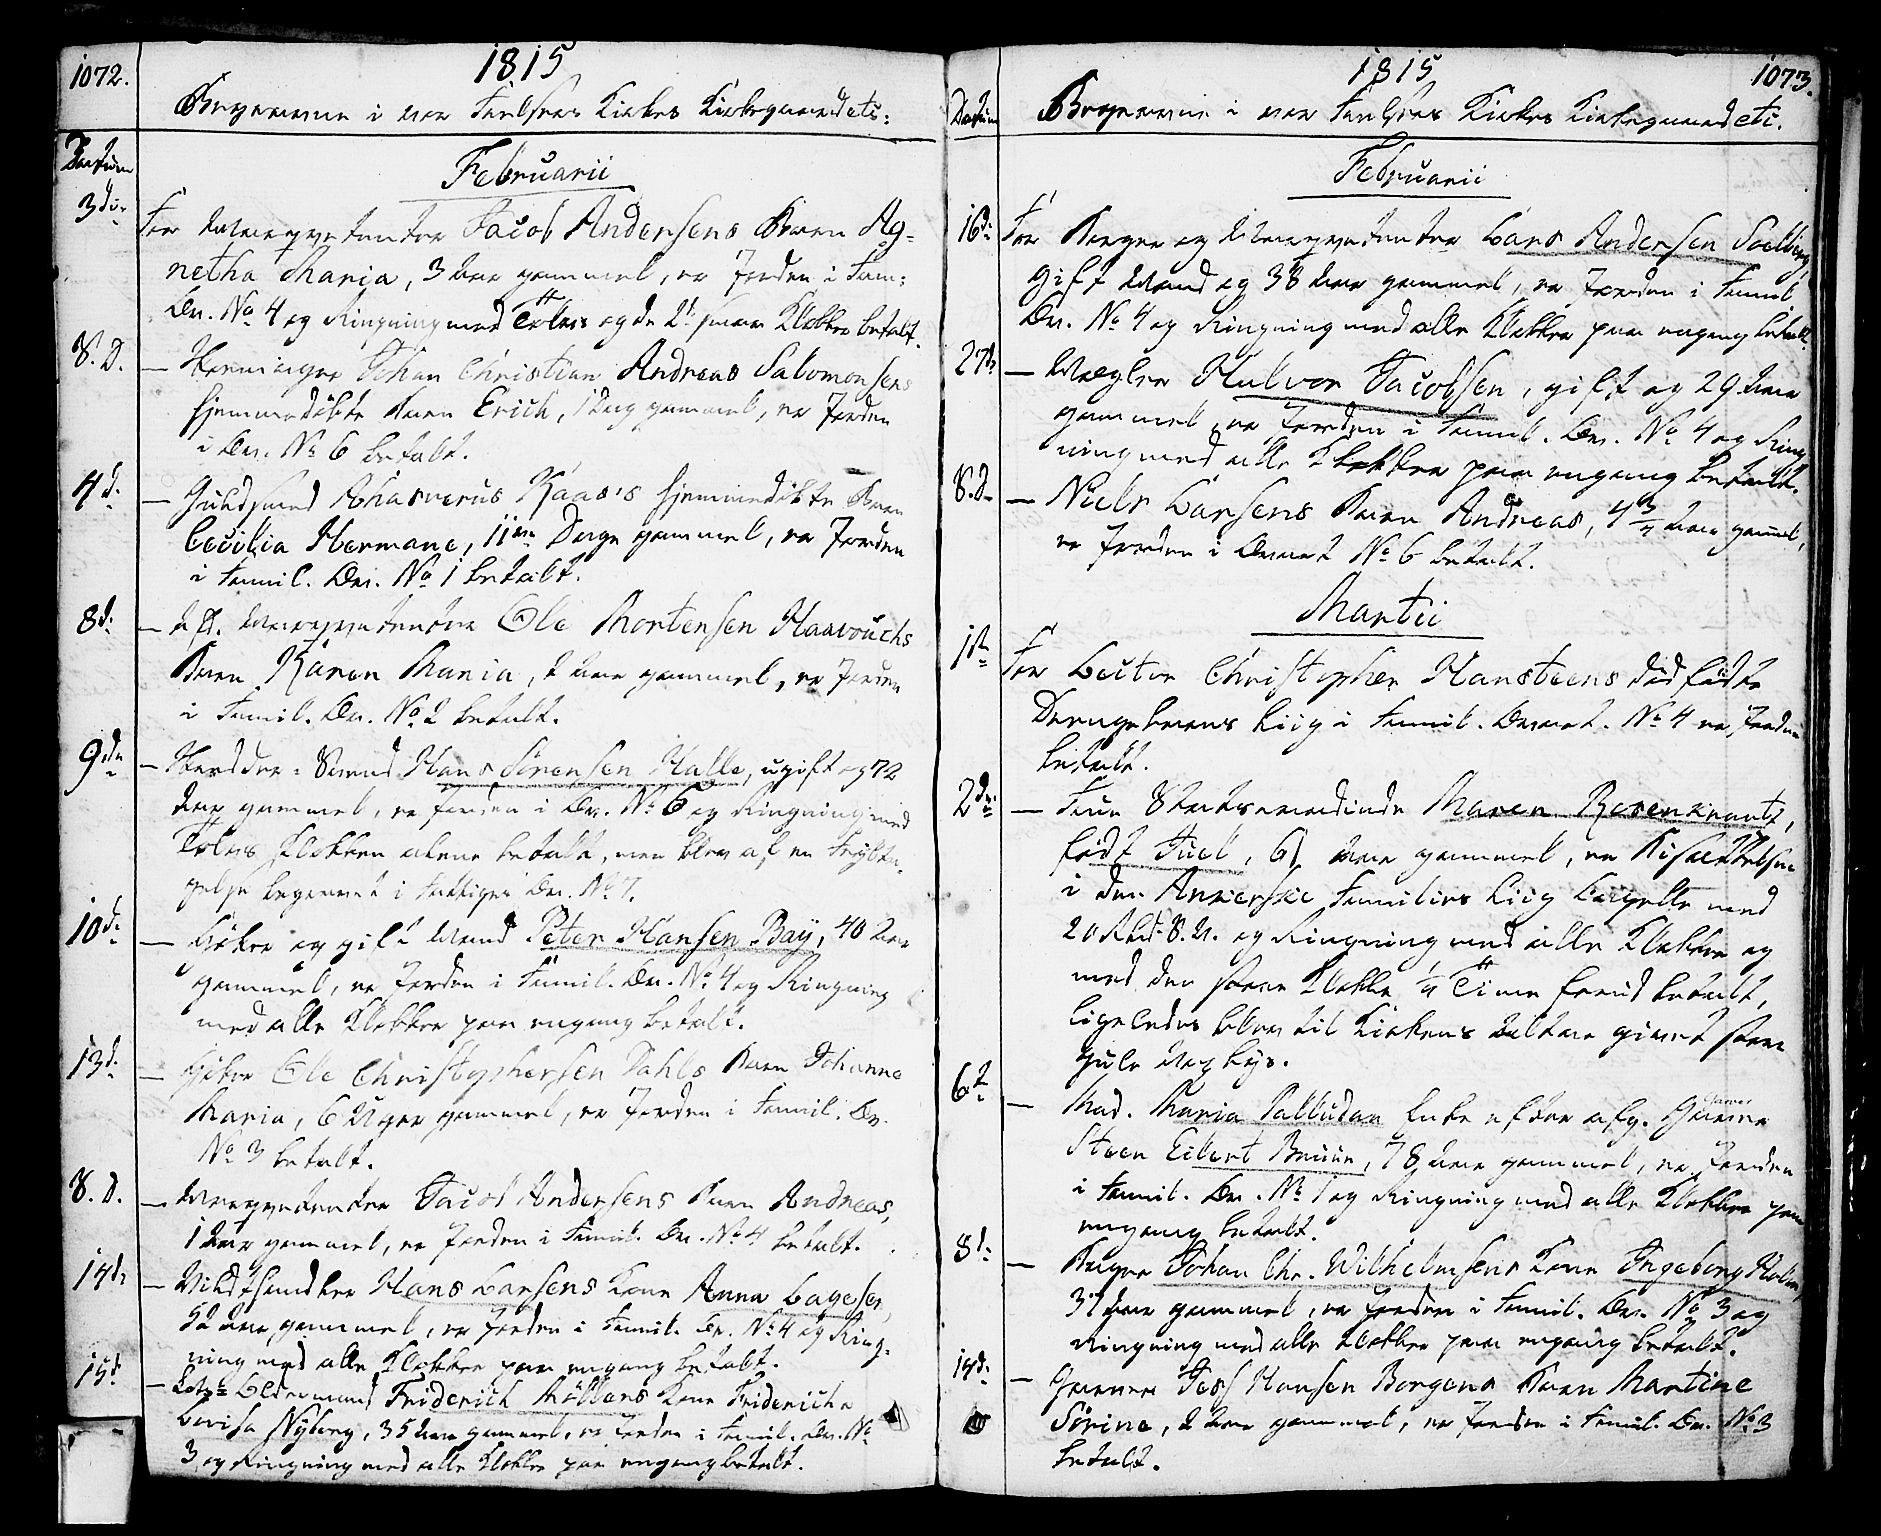 1072.
1815
Begravne i vor Frelsers Kirkes Kirkegaard etc:
Datum
Februarii
3die
For Marqvetenter Jacob Andersens Barn Ag-
netha Maria, 3 Aar gammel, er Jorden i Fam:
Qv. No 4 og Ringning med Tolv og de 2de smaa Klokker betalt.
S. D.
— Johan Christian Andreas Salomonsens
hjemmedøbte Barn Erich, 1 Dag gammel, er Jorden
i Qv. No 6 betalt.
4d:
— Guldsmed Ahasverus Kaas's hjemmedøbte Barn
Cecilia Hermane, 11 Dage gammel, er Jorden
i Famil. Qv. No 1 betalt.
8d:
— Marqvetenter Ole Mortensen Haavouchs
Barn Karen Maria, 2 Aar gammel, er Jorden
i Famil. Qv. No 2 betalt.
9de
— Svend Hans Sörensen Halle, ugift og 72
Aar gammel, er Jorden i Qv. No 6 og Ringning med
Tolv Klokken alene betalt, men blev af en
begravet i Fattiges Qv. No 7.
10d:
— Høker og gift Mand Peter Hansen Bay, 40 Aar
gammel, er Jorden i Famil. Qv. No 4 og Ringning
med alle Klokker paa engang betalt.
13d:
— Høker Ole Christophersen Dahls Barn Johanne
Maria, 6 Uger gammel, er Jorden i Famil. Qv.
No 3 betalt.
S. D.
— Marqvetenter Jacob Andersens Barn Andreas,
1 Aar gammel, er Jorden i Famil. Qv. No 4 betalt.
14de
— Hans Larsens Kone Anna Lagesen,
52 Aar gammel, er Jorden i Famil. Qv. No 4 og Ring-
ning med alle Klokker paa engang betalt.
15d:
— Oldermand Friderich Möllers Kone Friderich
Lovisa Nyborg, 35 Aar gammel, er Jorden i Famil. Qv. No
3 og Ringning med alle Klokker paa engang betalt.
1815
1073.
Datum
Begravne i vor Frelsers Kirkes Kirkegaard etc.
Februarii
16d:
For Borger og Marqvetenter Lars Andersen Soelberg,
gift Mand og 38 Aar gammel, er Jorden i Famil
Qv. No 4 og Ringning med alle Klokker paa engang betalt.
27de
— Mægler Halvor Jacobsen, gift og 29 Aar
gammel, er Jorden i Famil. Qv. No 4 og Ring
ning med alle Klokker paa engang betalt.
S. D.
— Niels Larsens Barn Andreas, 4 3/4 Aar gammel,
er Jorden i Qvart No 6 betalt.
Martii
1ste
For Lector Christopher Hansteens dødfødte
Drengebarns Liig i Famil. Qvart. No 4 er Jorden
betalt.
2den
— Frue Etatsraadinde Maren Rosenkrantz,
født Juel, 61 Aar gammel, er Bisættelsen
i den Ankerske Families Liig Capelle med
20 Rbd S.V. og Ringning med alle Klokker og
med den store Klokke 1/4 Time forud betalt,
ligeledes blev til Kirkens Altar givet store
gule Voxlys.
6te
— Mad. Maria Palludan Enke efter afg. Garver
Garver
Steen Eilert Bruun, 78 Aar gammel, er Jorden
i Famil. Qv. No 1 og Ringning med alle Klokker paa
engang betalt.
8d:
— Bager Johan Chr. Wilhelmsens Kone Ingeborg Holm,
37 Aar gammel, er Jorden i Famil. Qv. No 3 og
Ringning med alle Klokker paa engang betalt.
14d:
— Garver Jess Hansen Borgens Barn Martine
Sörine, 2 Aar gammel, er Jorden i Famil. Qv. No 3
betalt.